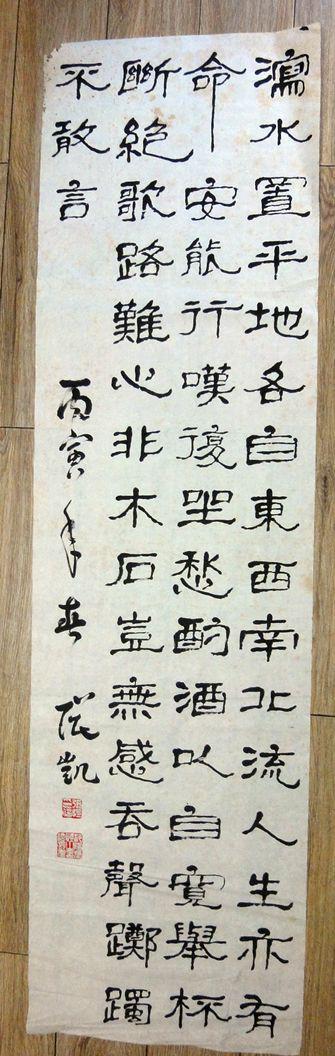 瀉水置平地各自東西南北流人生亦有
命安能行嘆復坐愁酌酒以自寬舉杯
斷絕歌路難心非木石豈無感吞聲躑躅
不敢言
丙寅年春 凱